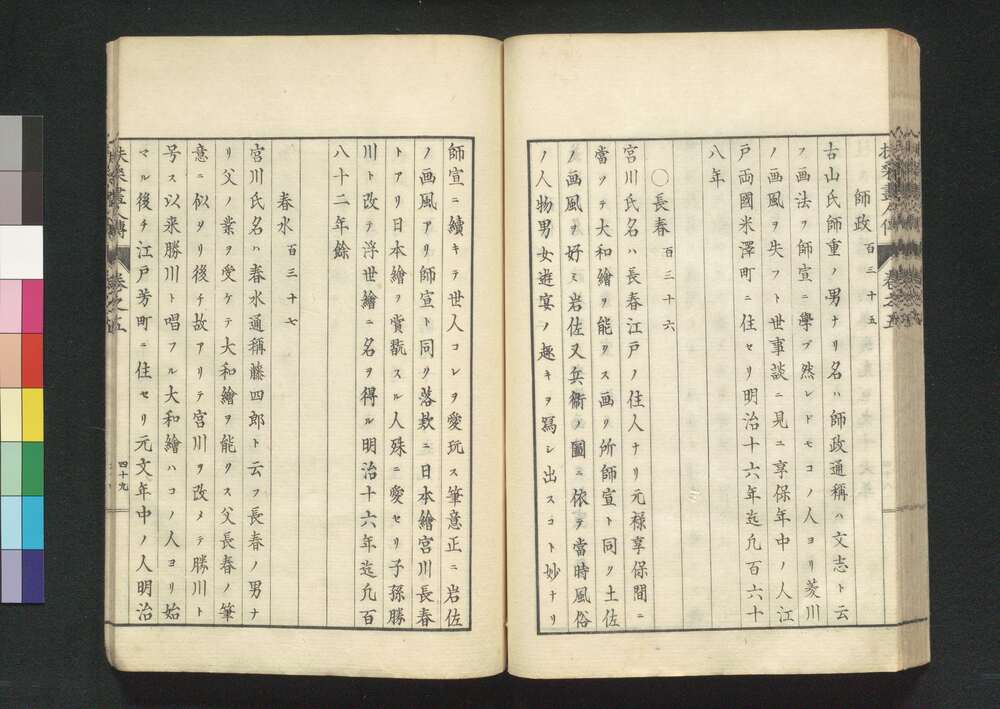 師政 百三十五
古山氏師重ノ男ナリ名ハ師政通稱ハ文志ト云
フ画法ヲ師宣ニ學ブ然レドモコノ人ヨリ菱川
ノ画風ヲ失フト世事談ニ見ユ享保年中ノ人江
戸両國米澤町ニ住セリ明治十六年迄凡百六十
八年
〇長春 百三十六
宮川氏名ハ長春江戸ノ住人ナリ元禄享保間ニ
當ツテ大和繪ヲ能クス画ク所師宣ト同ク土佐
ノ画風ヲ好ミ岩佐又兵衞ノ圖ニ依テ當時風俗
ノ人物男女遊宴ノ趣キヲ寫シ出スコト妙ナリ
師宣ニ續キテ世人コレヲ愛玩ス筆意正ニ岩佐
ノ画風アリ師宣ト同ク落款ニ日本繪宮川長春
トアリ日本繪ヲ賞翫スル人殊ニ愛セリ子孫勝
川ト改テ浮世繪ニ名ヲ得ル明治十六年迄凡百
八十二年餘
春水 百三十七
宮川氏名ハ春水通稱藤四郎ト云フ長春ノ男ナ
リ父ノ業ヲ受ケテ大和繪ヲ能クス父長春ノ筆
意ニ似タリ後チ故アリテ宮川ヲ改メテ勝川ト
号ス以来勝川ト唱フル大和繪ハコノ人ヨリ始
マル後チ江戸芳町ニ住セリ元文年中ノ人明治
扶桑畫人傳 卷之五
四十九